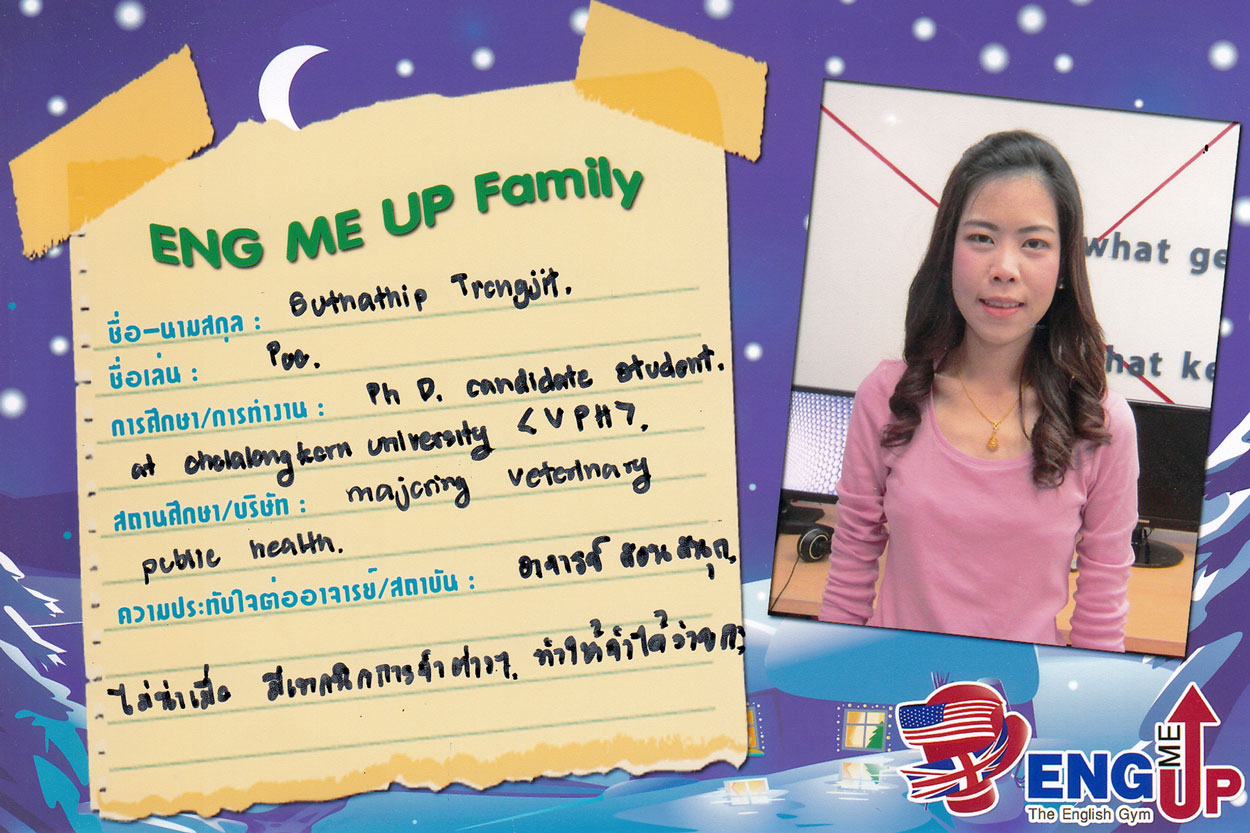 ENG ME UP Family
ชื่อ-นามสกุล : Suthathip Trongjit.
ชื่อเล่น : Poo.
การศึกษา/การทำงาน : Ph D. candidate student.
at cholalongkorn university <VPH>.
สถานศึกษา/บริษัท : majoring veterinary
public health.
ความประทับใจต่ออาจารย์/สถาบัน : อาจารย์ สอนสนุก,
ไม่น่าเบื่อ มีเทคนิคการจำต่างๆ, ทำให้จำได้ง่าย
what ge
hat ke
ENG ME UP
The English Gym